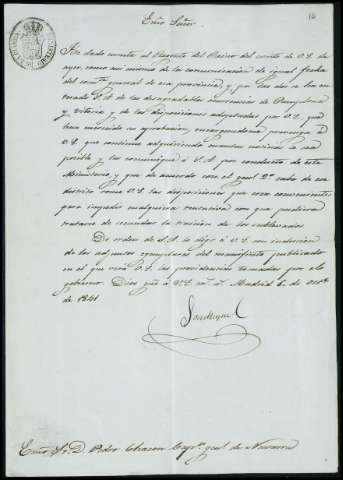 Exmo Señor.
He dado cuenta al Regente del Reino del escrito de V.E. de
ayer, como asi mismo de la comunicacion de igual fecha
del general de esa provincia, y por las dos se ha en-
terado S.A. de las desagradables ocurrencias de Pamplona
y Vitoria y de las disposiciones adoptadas por V.E. que
han merecido su aprobacion, encargandome prevenga á
V.E. que continue adquiriendo cuantas noticias le sea
posible y las comunique á S.A. por conducto de este
Ministerio, y que de acuerdo con el gral 2º cabo de ese
distrito tome V.E. las disposiciones que crea convenientes
para impedir cualquiera tentativa con que pudiera
tratarse de secundar la traicion de los sublevados.
De orden de S.A. lo digo á V.E. con inclusion
de los adjuntos ejemplares del manifiesto publicado
en el que verá V.E. las providencias tomadas por el
gobierno. Dios gue á V.E. ms as Madrid 5 de Octe
de 1841
Sn Miguel
Exmo Sr. D. Pedro Chacon Capn. gral de Navarra